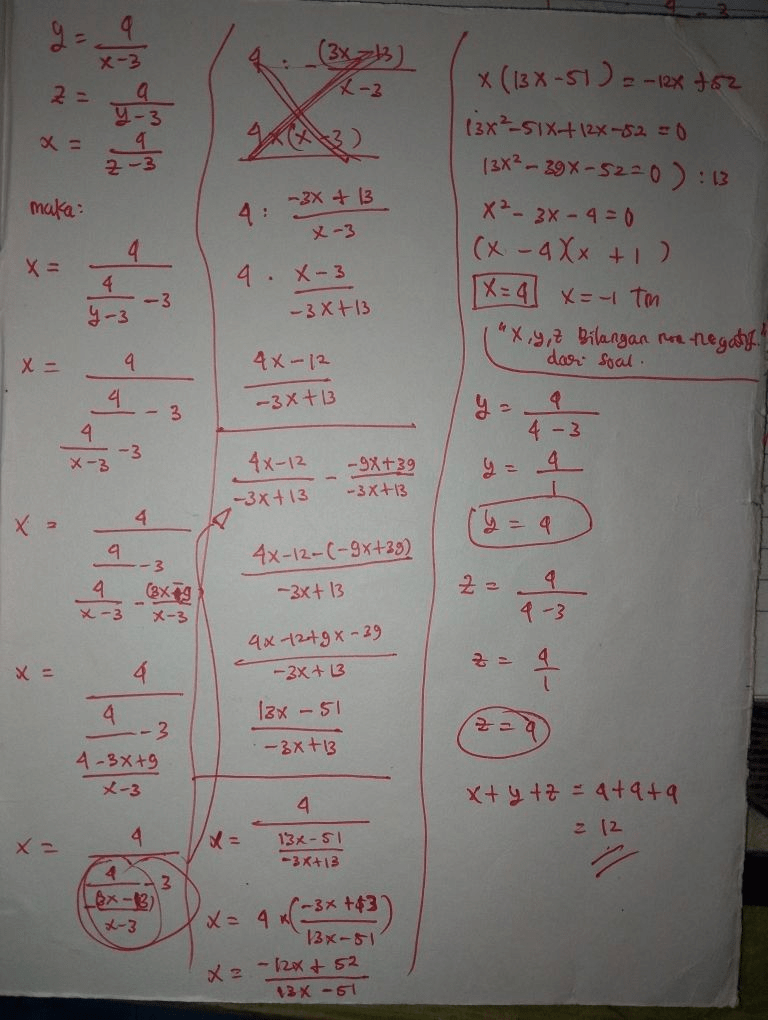 y = 4/(x-3)
z = 4/(y-3)
x = 4/(z-3)
maka:
x = 4/(4/(y-3) - 3)
x = 4/(4/(4/(x-3) - 3) - 3)
x = 4/(4/(4/(x-3) - (3x-9)/(x-3)) - 3)
x = 4/(4/((4-3x+9)/(x-3)) - 3)
x = 4/(4/(-(3x-13)/(x-3)) - 3)
4 : -(3x-13)/(x-3)
4 x (x-3)
4 : (-3x+13)/(x-3)
4 . (x-3)/(-3x+13)
(4x-12)/(-3x+13)
(4x-12)/(-3x+13) - (-9x+39)/(-3x+13)
(4x-12-(-9x+39))/(-3x+13)
(4x-12+9x-39)/(-3x+13)
(13x-51)/(-3x+13)
x = 4/((13x-51)/(-3x+13))
x = 4 x ((-3x+13)/(13x-51))
x = (-12x+52)/(13x-51)
x(13x-51) = -12x+52
13x²-51x+12x-52=0
13x²-39x-52=0) : 13
x²-3x-4=0
(x-4)(x+1)
x=4 x=-1 TM
"x,y,z Bilangan non-negatif"
dari soal.
y = 4/(4-3)
y = 4/1
y = 4
z = 4/(4-3)
z = 4/1
z = 4
x+y+z = 4+4+4
= 12